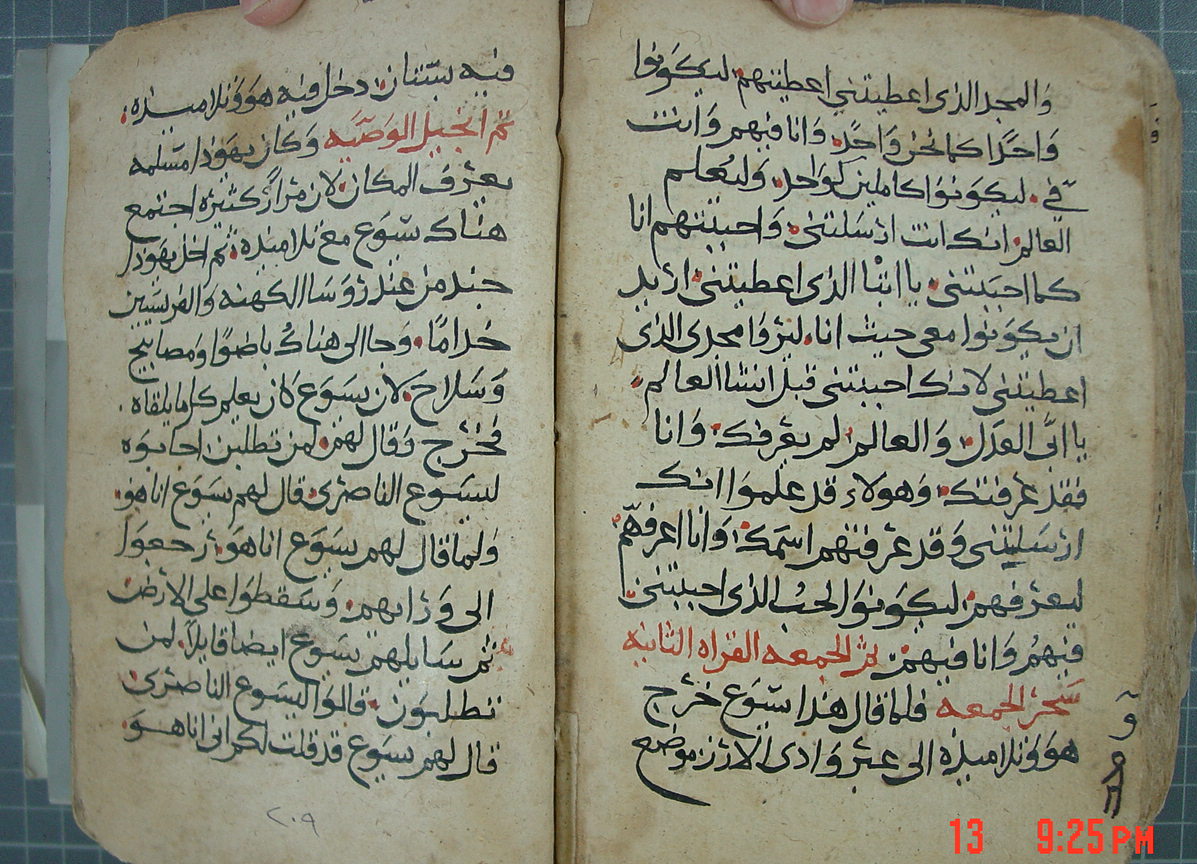 والمجد الذي اعطيتني اعطيتهم ليكونوا
واحدًا كما نحن واحد. وانا فيهم وانت
في. ليكونوا كاملين لواحد. وليعلم
العالم انك انت ارسلتني. واحببتهم انا
كما احببتني. يا ابتا الذي اعطيتني اريد
ان يكونوا معي حيث انا. ليروا مجدي الذي
اعطيتني لانك احببتني قبل انشا العالم.
يا ابي العدل. والعالم لم يعرفك. وانا
فقد عرفتك. وهولاء قد علموا انك
ارسلتني وقد عرفتهم اسمك. وانا اعرفهم
ليعرفهم. ليكونوا الحب الذي احببتني
فيهم وانا فيهم. تم الجمعه القراه الثانيه
سحر الجمعه فلما قال هذا يسوع خرج
هو وتلاميذه الى عبر وادي الارز موضع
فيه بستان. دخل فيه هو وتلاميذه.
تم انجيل الوصيه وكان يهودا مسلمه
يعرف المكان. لان مرارًا كثيره اجتمع
هناك يسوع مع تلاميذه. ثم اخذ يهودا
جند من عند روسا الكهنه والفريسيين
خدامًا. وجا الى هناك باضوا ومصابيح
وسلاح. لان يسوع كان يعلم كلما يلقاه.
فخرج وقال لهم. لمن تطلبن اجابوه
ليسوع الناصري. قال لهم يسوع انا هو.
ولما قال لهم يسوع انا هو. رجعوا
الى ورايهم. وسقطوا على الارض
ثم سايلهم يسوع ايضا قايلاً. لمن
تطلبون. قالوا ليسوع الناصري.
قال لهم يسوع قد قلت لكم اني انا هو.
٢٠٩
13 9:25PM